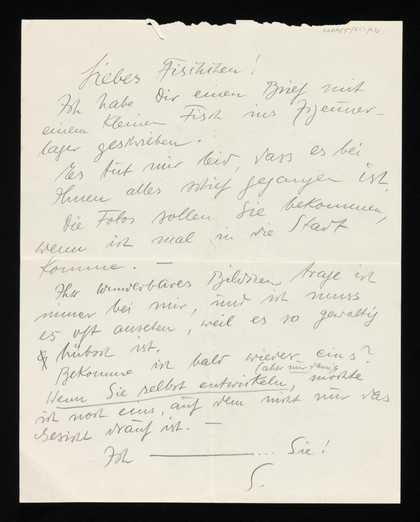 Liebes Fischchen!
Ich habe Dir einen Brief mit
einem kleinen Fisch ins Zigeuner-
lager geschrieben.
Es tut mir leid, dass es bei
Ihnen alles schief gegangen ist.
Die Fotos sollen Sie bekommen,
wenn ich mal in die Stadt
komme. —
Ihr wunderbares Bildchen trage ich
immer bei mir, und ich muss
es oft ansehen, weil es so gewaltig
hübsch ist.
Bekomme ich bald wieder eins?
(aber nur wenn
Wenn Sie selbst entwickeln, möchte
ich noch eins, auf dem nicht nur das
Gesicht drauf ist. —
Ich ———— ... Sie!
S.